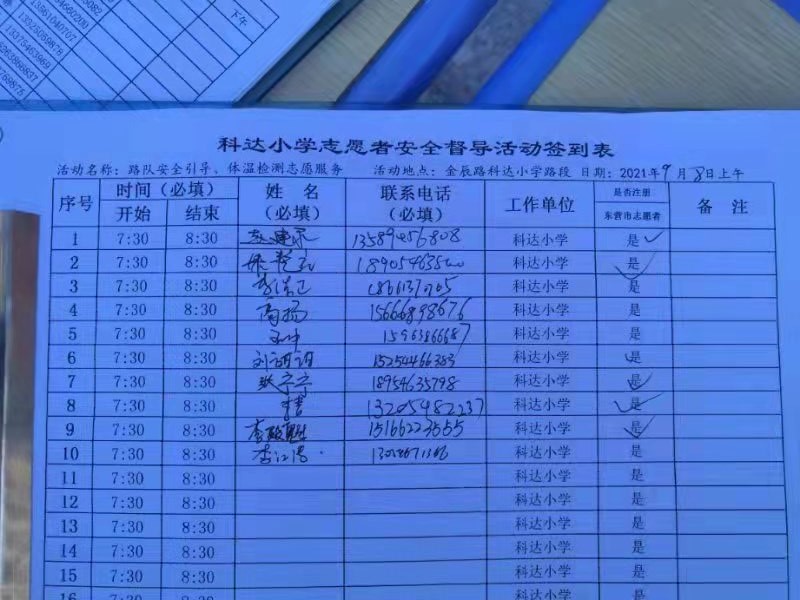 下午
科达小学志愿者安全督导活动签到表
活动名称：路队安全引导、体温检测志愿服务 活动地点：金辰路科达小学路段 日期：2021年9月8日上午
序号 时间（必填） 姓名（必填） 联系电话（必填） 工作单位 是否注册东营市志愿者 备注
开始 结束
1 7:30 8:30 13589456808 科达小学 是
2 7:30 8:30 科达小学 是
3 7:30 8:30 科达小学 是
4 7:30 8:30 南扬 15666898676 科达小学 是
5 7:30 8:30 科达小学 是
6 7:30 8:30 15254466383 科达小学 是
7 7:30 8:30 18954635798 科达小学 是
8 7:30 8:30 13205482237 科达小学 是
9 7:30 8:30 15166223555 科达小学 是
10 7:30 8:30 李江涛 科达小学 是
11 7:30 8:30 科达小学 是
12 7:30 8:30 科达小学 是
13 7:30 8:30 科达小学 是
14 7:30 8:30 科达小学 是
15 7:30 8:30 科达小学 是
16 7:30 8:30 科达小学 是